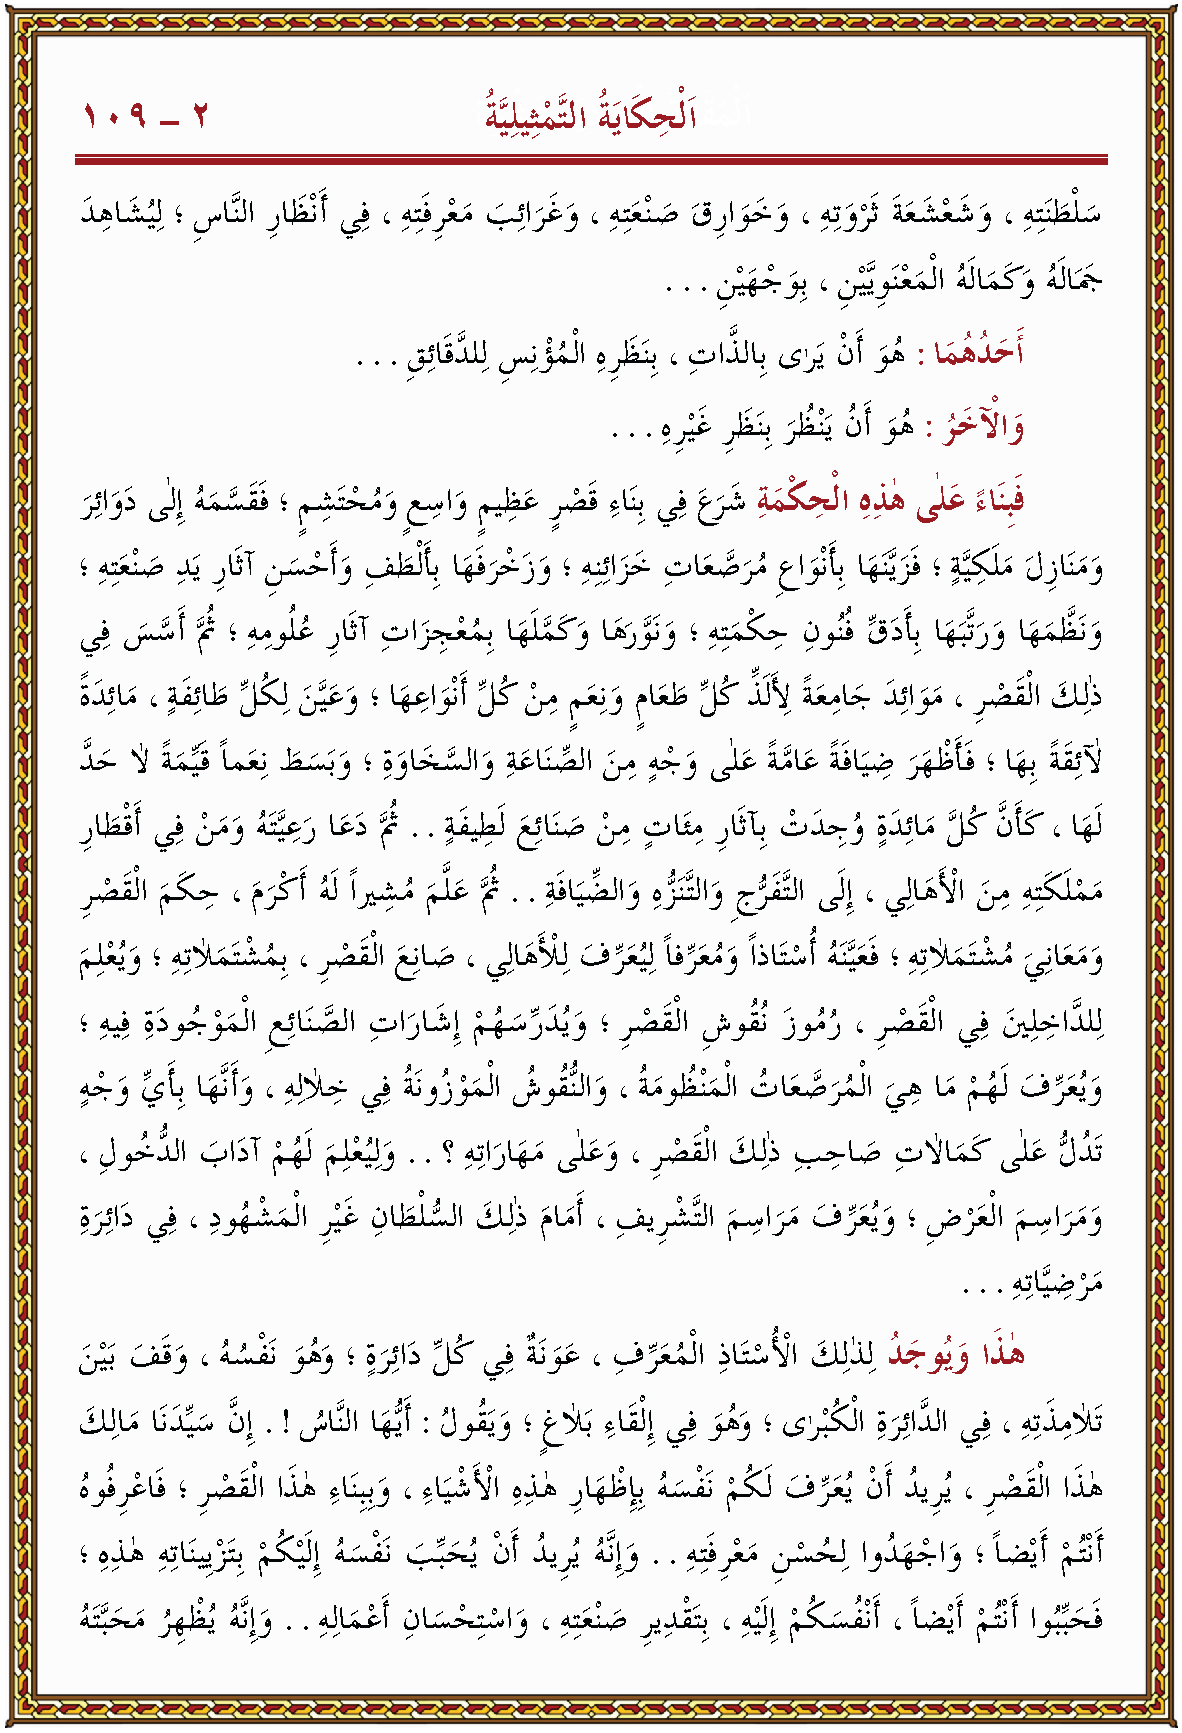 اَلْحِكَايَةُ التَّمْثِيلِيَّةُ ٢ ـ ١٠٩
سَلْطَنَتِهِ ، وَشَعْشَعَةَ ثَرْوَتِهِ ، وَخَوَارِقَ صَنْعَتِهِ ، وَغَرَائِبَ مَعْرِفَتِهِ ، فِي أَنْظَارِ النَّاسِ ؛ لِيُشَاهِدَ
جَمَالَهُ وَكَمَالَهُ الْمَعْنَوِيَّيْنِ ، بِوَجْهَيْنِ . . .
أَحَدُهُمَا : هُوَ أَنْ يَرٰى بِالذَّاتِ ، بِنَظَرِهِ الْمُؤْنِسِ لِلدَّقَائِقِ . . .
وَالْآخَرُ : هُوَ أَنُ يَنْظُرَ بِنَظَرِ غَيْرِهِ . . .
فَبِنَاءً عَلٰى هٰذِهِ الْحِكْمَةِ شَرَعَ فِي بِنَاءِ قَصْرٍ عَظِيمٍ وَاسِعٍ وَمُحْتَشِمٍ ؛ فَقَسَّمَهُ إِلٰى دَوَائِرَ
وَمَنَازِلَ مَلَكِيَّةٍ ؛ فَزَيَّنَهَا بِأَنْوَاعِ مُرَصَّعَاتِ خَزَائِنِهِ ؛ وَزَخْرَفَهَا بِأَلْطَفِ وَأَحْسَنِ آثَارِ يَدِ صَنْعَتِهِ ؛
وَنَظَّمَهَا وَرَتَّبَهَا بِأَدَقِّ فُنُونِ حِكْمَتِهِ ؛ وَنَوَّرَهَا وَكَمَّلَهَا بِمُعْجِزَاتِ آثَارِ عُلُومِهِ ؛ ثُمَّ أَسَّسَ فِي
ذٰلِكَ الْقَصْرِ ، مَوَائِدَ جَامِعَةً لِأَلَذِّ كُلِّ طَعَامٍ وَنِعَمٍ مِنْ كُلِّ أَنْوَاعِهَا ؛ وَعَيَّنَ لِكُلِّ طَائِفَةٍ ، مَائِدَةً
لَائِقَةً بِهَا ؛ فَأَظْهَرَ ضِيَافَةً عَامَّةً عَلٰى وَجْهٍ مِنَ الصِّنَاعَةِ وَالسَّخَاوَةِ ؛ وَبَسَطَ نِعَماً قَيِّمَةً لَا حَدَّ
لَهَا ، كَأَنَّ كُلَّ مَائِدَةٍ وُجِدَتْ بِآثَارِ مِئَاتٍ مِنْ صَنَائِعَ لَطِيفَةٍ . . ثُمَّ دَعَا رَعِيَّتَهُ وَمَنْ فِي أَقْطَارِ
مَمْلَكَتِهِ مِنَ الْأَهَالِي ، إِلَى التَّفَرُّجِ وَالتَّنَزُّهِ وَالضِّيَافَةِ . . ثُمَّ عَلَّمَ مُشِيراً لَهُ أَكْرَمَ ، حِكَمَ الْقَصْرِ
وَمَعَانِيَ مُشْتَمَلَاتِهِ ؛ فَعَيَّنَهُ أُسْتَاذاً وَمُعَرِّفاً لِيُعَرِّفَ لِلْأَهَالِي ، صَانِعَ الْقَصْرِ ، بِمُشْتَمَلَاتِهِ ؛ وَيُعْلِمَ
لِلدَّاخِلِينَ فِي الْقَصْرِ ، رُمُوزَ نُقُوشِ الْقَصْرِ ؛ وَيُدَرِّسَهُمْ إِشَارَاتِ الصَّنَائِعِ الْمَوْجُودَةِ فِيهِ ؛
وَيُعَرِّفَ لَهُمْ مَا هِيَ الْمُرَصَّعَاتُ الْمَنْظُومَةُ ، وَالنُّقُوشُ الْمَوْزُونَةُ فِي خِلَالِهِ ، وَأَنَّهَا بِأَيِّ وَجْهٍ
تَدُلُّ عَلٰى كَمَالَاتِ صَاحِبِ ذٰلِكَ الْقَصْرِ ، وَعَلٰى مَهَارَاتِهِ ؟ . . وَلِيُعْلِمَ لَهُمْ آدَابَ الدُّخُولِ ،
وَمَرَاسِمَ الْعَرْضِ ؛ وَيُعَرِّفَ مَرَاسِمَ التَّشْرِيفِ ، أَمَامَ ذٰلِكَ السُّلْطَانِ غَيْرِ الْمَشْهُودِ ، فِي دَائِرَةِ
مَرْضِيَّاتِهِ . . .
هٰذَا وَيُوجَدُ لِذٰلِكَ الْأُسْتَاذِ الْمُعَرِّفِ ، عَوَنَةٌ فِي كُلِّ دَائِرَةٍ ؛ وَهُوَ نَفْسُهُ ، وَقَفَ بَيْنَ
تَلَامِذَتِهِ ، فِي الدَّائِرَةِ الْكُبْرٰى ؛ وَهُوَ فِي إِلْقَاءِ بَلَاغٍ ؛ وَيَقُولُ : أَيُّهَا النَّاسُ ! . إِنَّ سَيِّدَنَا مَالِكَ
هٰذَا الْقَصْرِ ، يُرِيدُ أَنْ يُعَرِّفَ لَكُمْ نَفْسَهُ بِإِظْهَارِ هٰذِهِ الْأَشْيَاءِ ، وَبِبِنَاءِ هٰذَا الْقَصْرِ ؛ فَاعْرِفُوهُ
أَنْتُمْ أَيْضاً ؛ وَاجْهَدُوا لِحُسْنِ مَعْرِفَتِهِ . . وَإِنَّهُ يُرِيدُ أَنْ يُحَبِّبَ نَفْسَهُ إِلَيْكُمْ بِتَزْيِينَاتِهِ هٰذِهِ ؛
فَحَبِّبُوا أَنْتُمْ أَيْضاً ، أَنْفُسَكُمْ إِلَيْهِ ، بِتَقْدِيرِ صَنْعَتِهِ ، وَاسْتِحْسَانِ أَعْمَالِهِ . . وَإِنَّهُ يُظْهِرُ مَحَبَّتَهُ